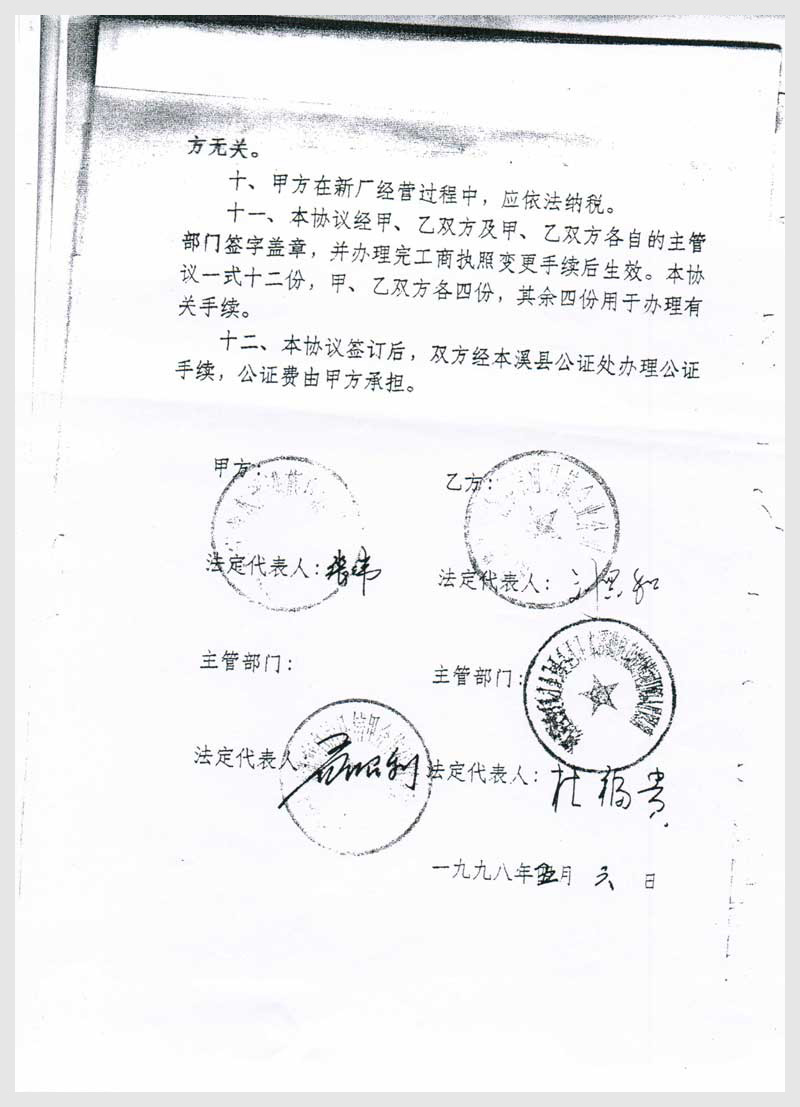 方无关。
十、甲方在新厂经营过程中，应依法纳税。
十一、本协议经甲、乙双方及甲、乙双方各自的主管
部门签字盖章，并办理完工商执照变更手续后生效。本协
议一式十二份，甲、乙双方各四份，其余四份用于办理有
关手续。
十二、本协议签订后，双方经本溪县公证处办理公证
手续，公证费由甲方承担。
甲方：
乙方：
法定代表人：
法定代表人：
主管部门：
主管部门：
法定代表人：
法定代表人：杜福贵
一九九八年五月六日